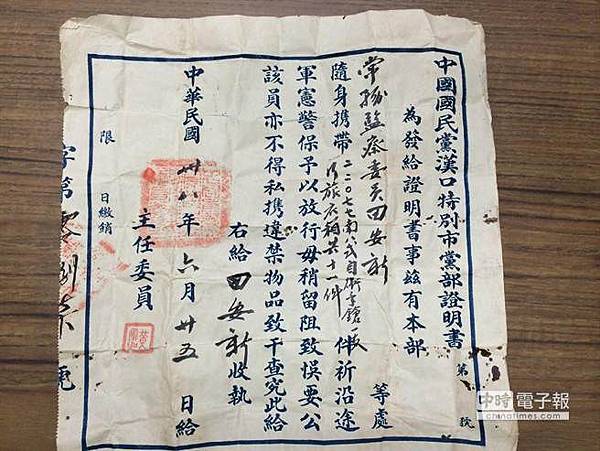 中國國民黨漢口特別市黨部證明書
第　號
為發給證明書事茲有本部
常務監察委員田安新　等處
隨身携帶二二〇七七南八式自衛手鎗一枝
行旅衣箱共十一件　件祈沿途
軍憲警保予以放行毋稍留阻致悞要公
該員亦不得私携違禁物品致干查究此給
右給田安新收執
中華民國卅八年六月廿五日給
主任委員
限　日繳銷
字第　號
中時電子報
chinatimes.com